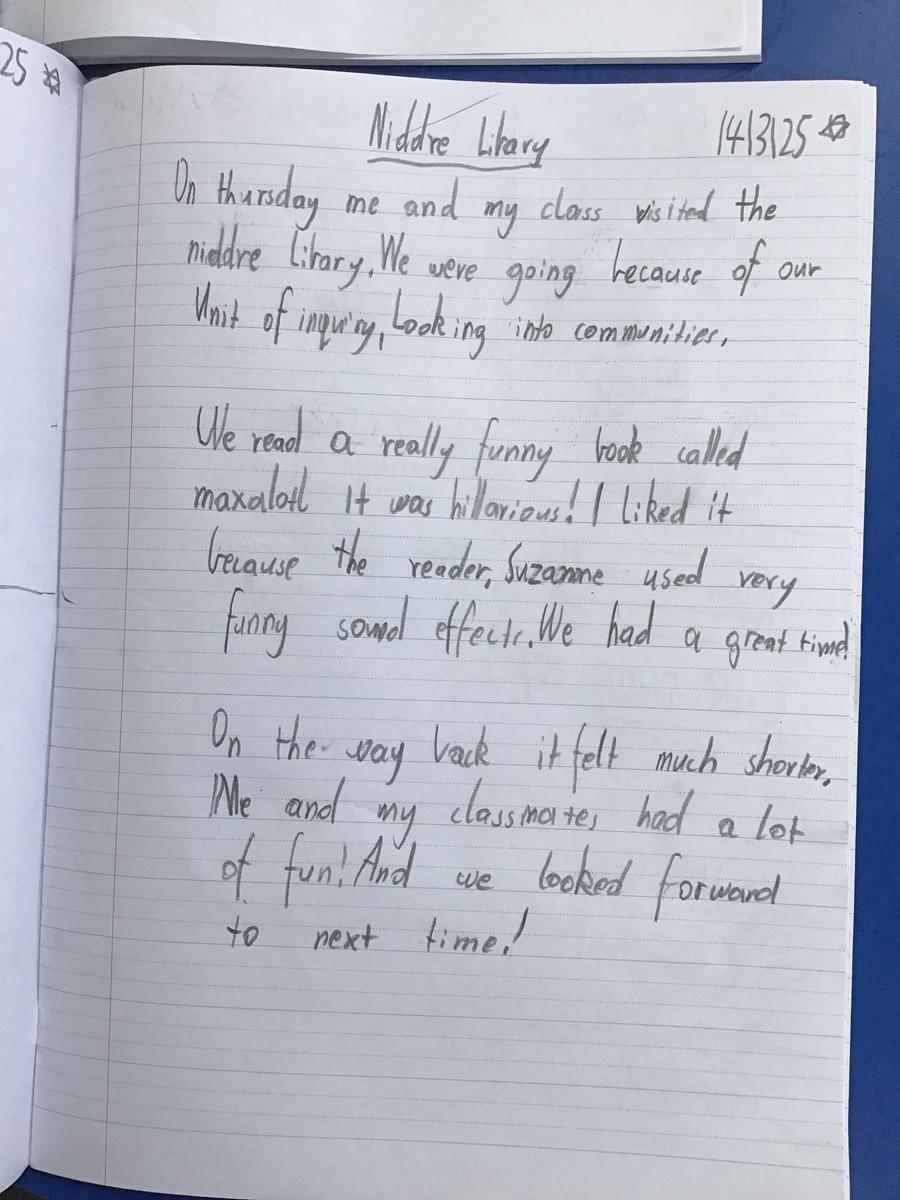 25
Niddre Libary
14/3/25
On thursday me and my class visited the
niddre libary. We were going because of our
Unit of inquiry, Looking into communities.
We read a really funny book called
maxalotl It was hillarious! I liked it
because the reader, Suzanne used very
funny sound effects. We had a great time!
On the way back it felt much shorter.
Me and my classmates had a lot
of fun! And we looked forward
to next time!